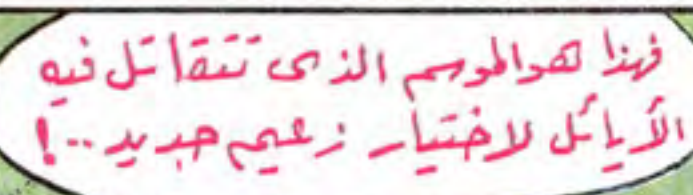 فهذا هو الموسم الذى تتقاتل فيه
الأيائل لاختيار زعيم جديد..!